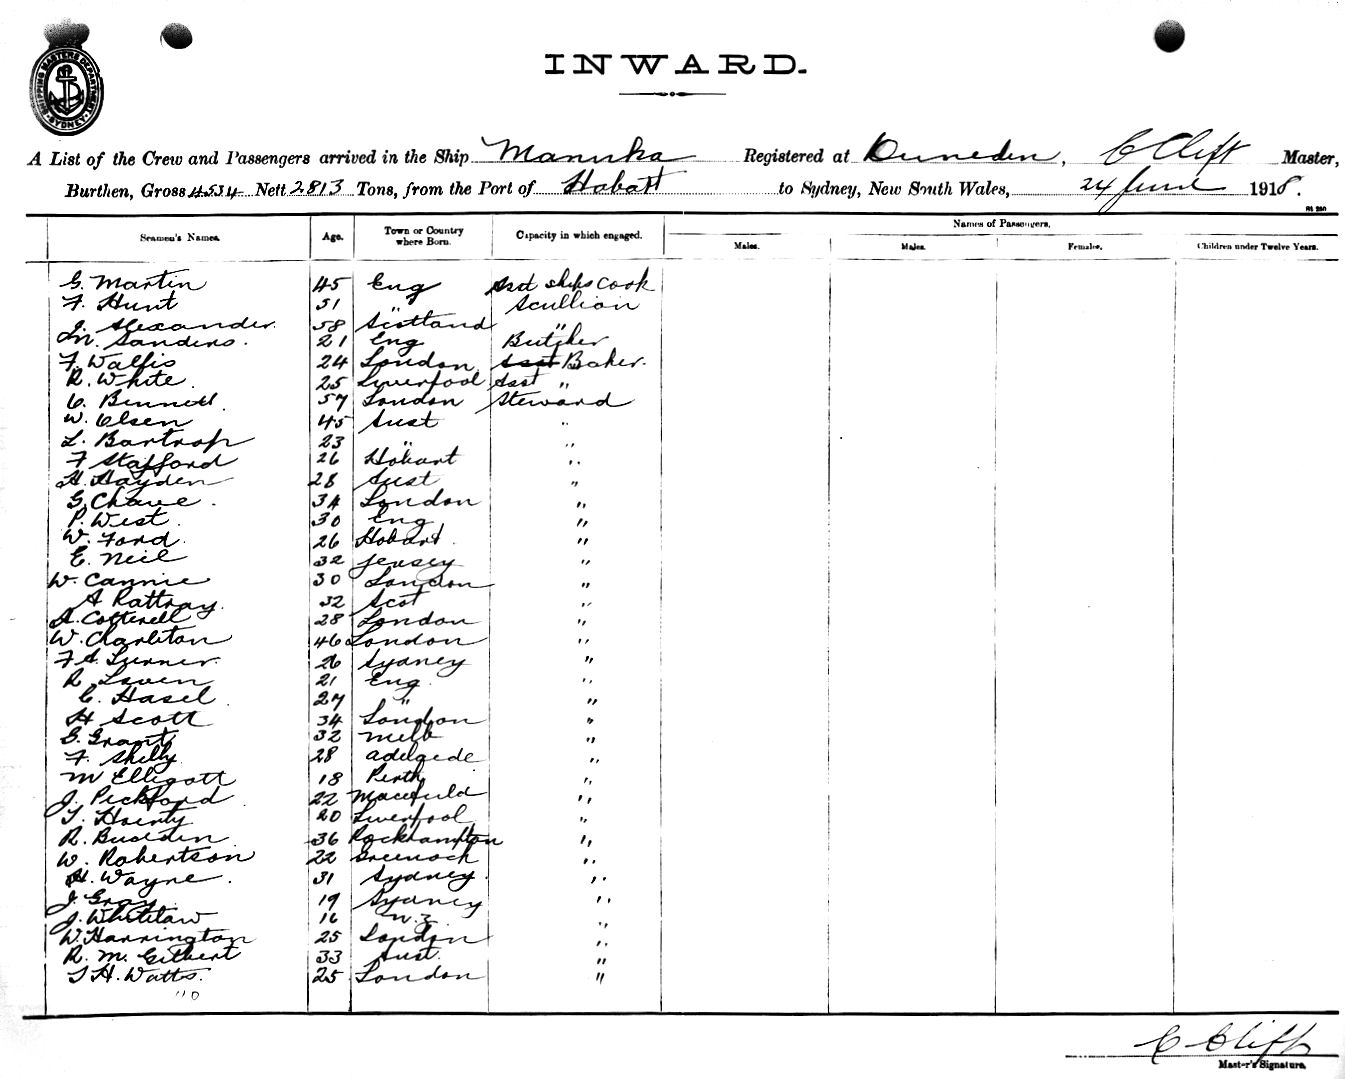 SHIPPING MASTERS DEPARTMENT SYDNEY
INWARD.
A List of the Crew and Passengers arrived in the Ship Manuka Registered at Dunedin, C Clift Master,
Burthen, Gross 4534 Nett 2813 Tons, from the Port of Hobart to Sydney, New South Wales, 24 June 1918.
Seamen's Names. Age. Town or Country where Born. Capacity in which engaged. Names of Passengers.
Males. Males. Females. Children under Twelve Years.
G. Martin 45 Eng ships Cook
F. Hunt 51 " Scullion
J. Alexander. 58 Scotland "
M. Sanders. 21 Eng Butcher
F. Wallis 24 London Asst Baker.
R. White. 25 Liverpool Asst "
C. Bennett 57 London Steward
W. Olsen 45 Aust "
L. Bartrop 23 " "
F Stafford 26 Hobart "
H. Hayden 28 Aust "
G. Chave. 34 London "
P. West. 30 Eng "
W. Ford. 26 Hobart. "
E. Neil 32 Jersey "
W. Cannie 30 London "
A Rattray. 32 Scot "
A. Cotterell 28 London "
W. Charlton 46 London "
F A. Turner. 26 Sydney "
R. 21 Eng. "
C. Hasel. 27 " "
H Scott 34 London "
G. Grant 32 Melb "
F. Shelly 28 Adelaide "
M Elligott 18 Perth "
J. Pickford 22 "
T. 20 Liverpool "
R. Budden 36 Rockhampton "
W. Robertson 22 Greenock "
H. Wayne. 31 Sydney. "
J. Gray. 19 Sydney "
J. Whitelaw 16 N.Z. "
W. Harrington 25 London "
R. M. Gilbert 33 Aust. "
T H. Watts. 25 London "
C Clift
Master's Signature.